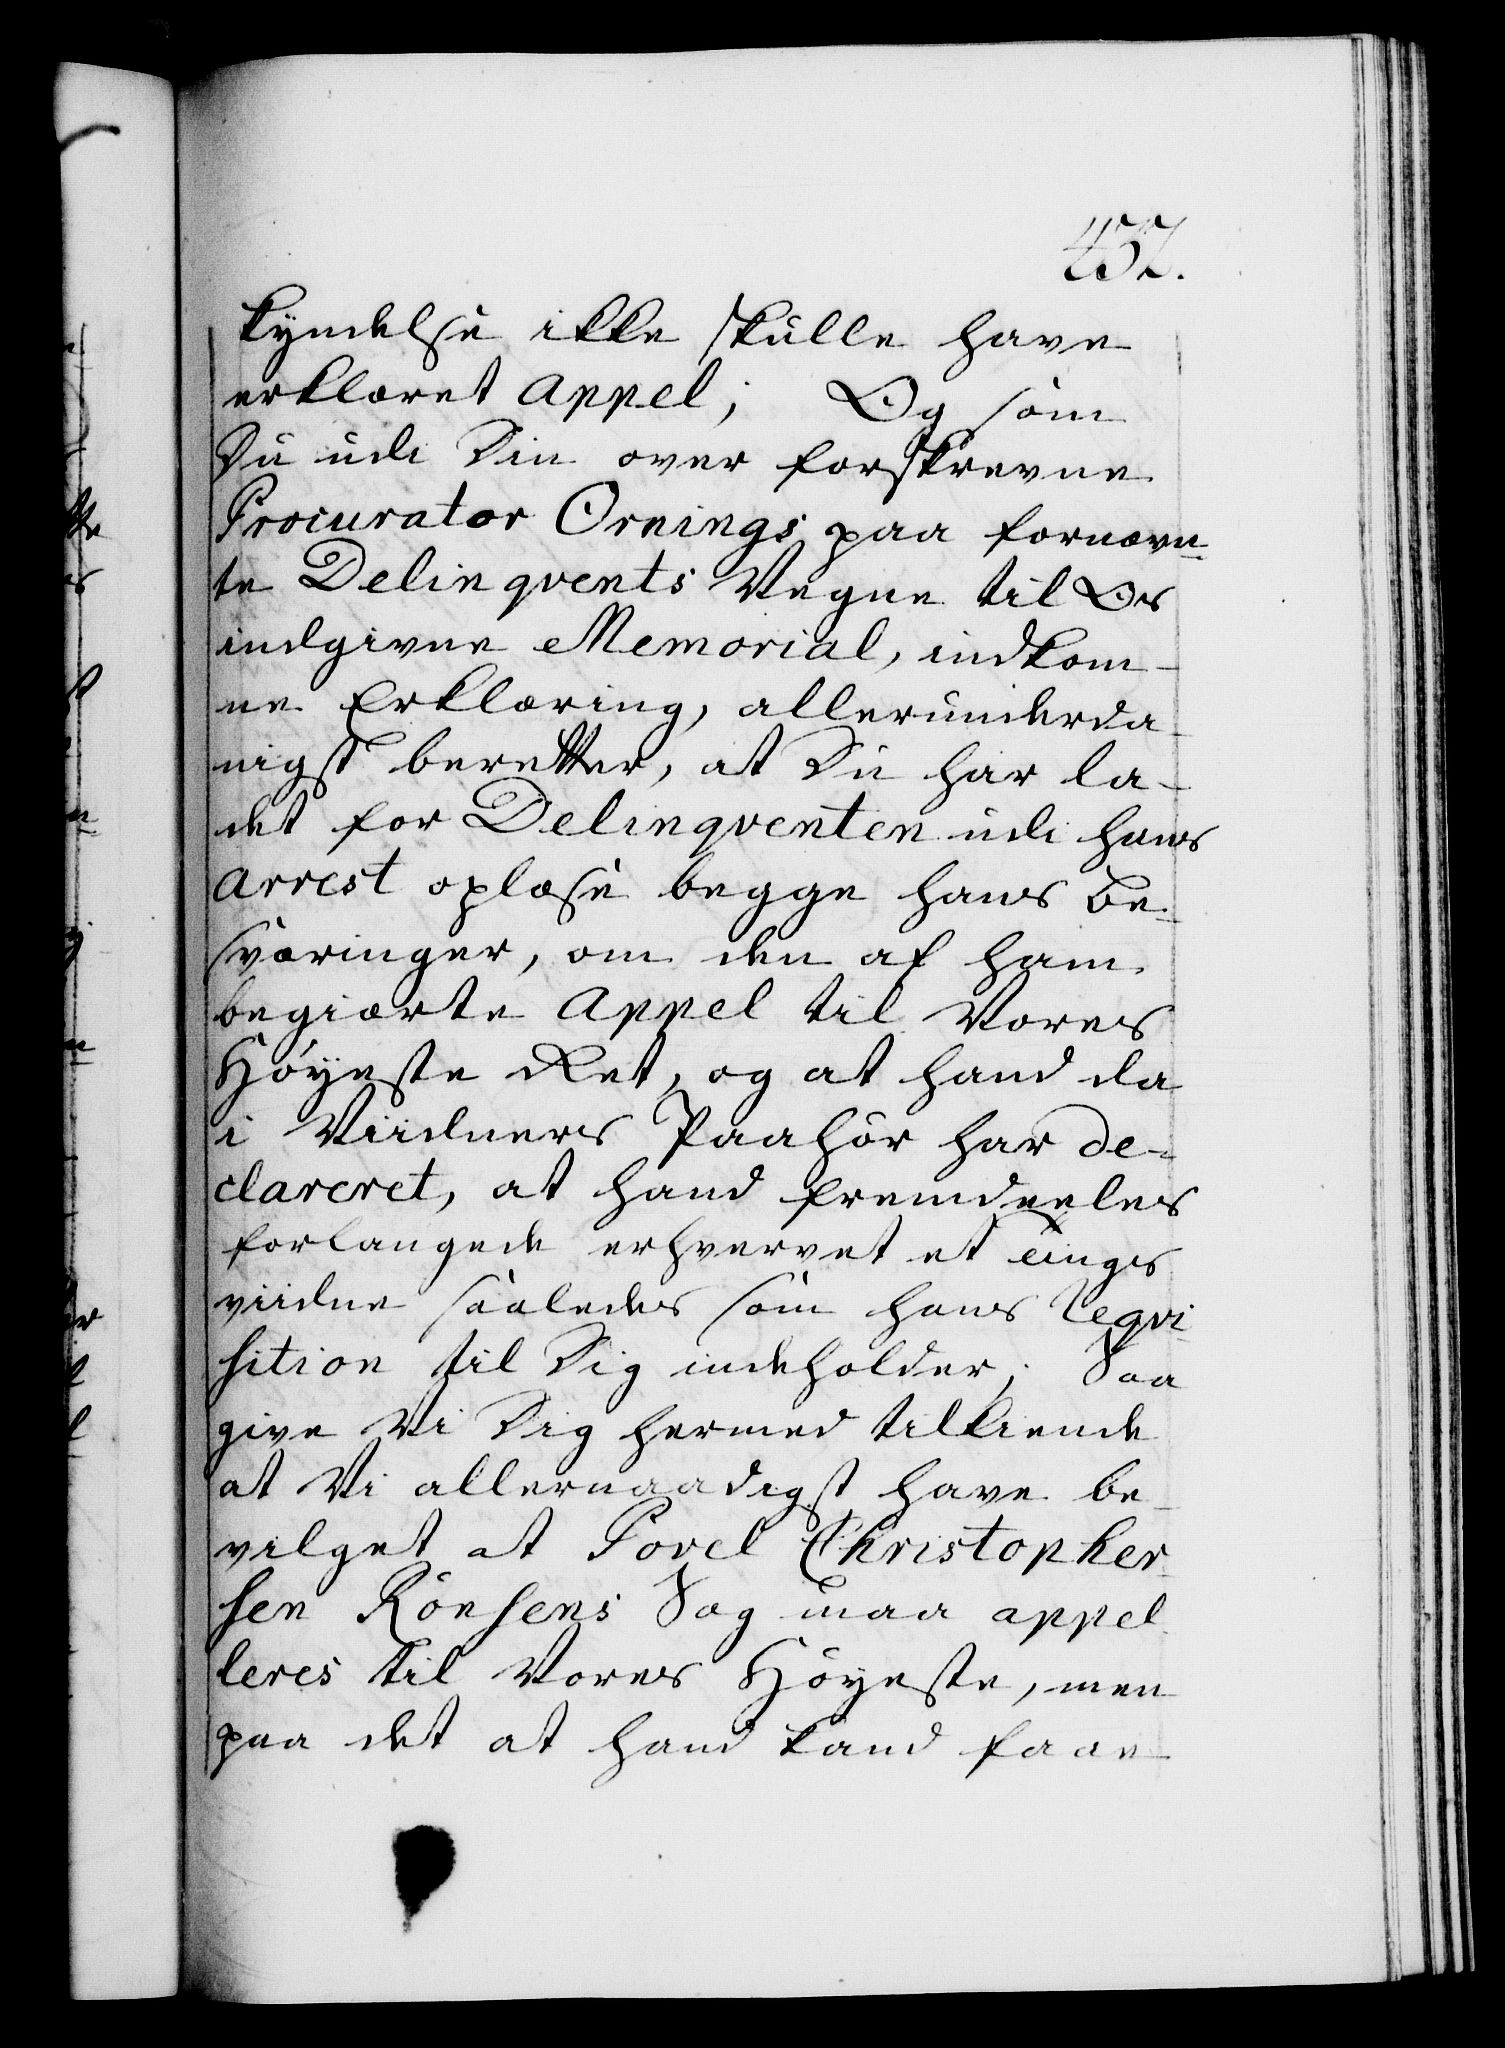 457.
kyndelse ikke skulle have
erklæret Appel; Og som
Du udi Din over forskrevne
Procurator Ornings paa fornævn-
te Delinqvents Vegne til Os
indgivne Memorial, indkom-
ne Erklæring, allerunderda-
nigst beretter, at Du har la-
det for Delinqventen udi hans
Arrest oplæse begge hans Be-
sværinger, om den af ham
begiærte Appel til Vores
Höyeste Ret, og at hand da
i Viidners Paahör har de-
clareret, at hand fremdeeles
forlangede erhvervet et tings
viidne saaledes som hans Reqvi-
sition til Dig indeholder; Saa
give Vi Dig hermed tilkiende
at Vi allernaadigst have be-
vilget at Povel Christopher-
sen Rönsens Sag maa appel-
leres til Vores Höyeste, men
paa det at hand kand faae